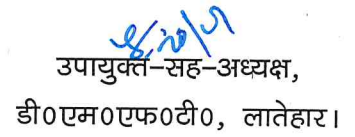 उपायुक्त-सह-अध्यक्ष,
डी०एम०एफ०टी०, लातेहार।